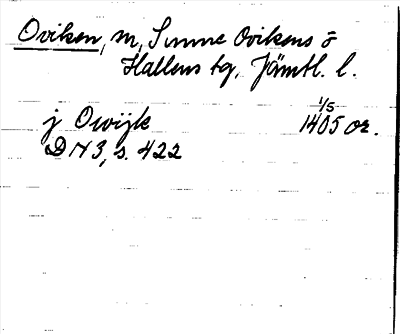 Oviken, m, Sunne Ovikens o
Hallens tg, Jämtl. l.
1/5
j Owijk 1405 or.
DN 3, s. 422